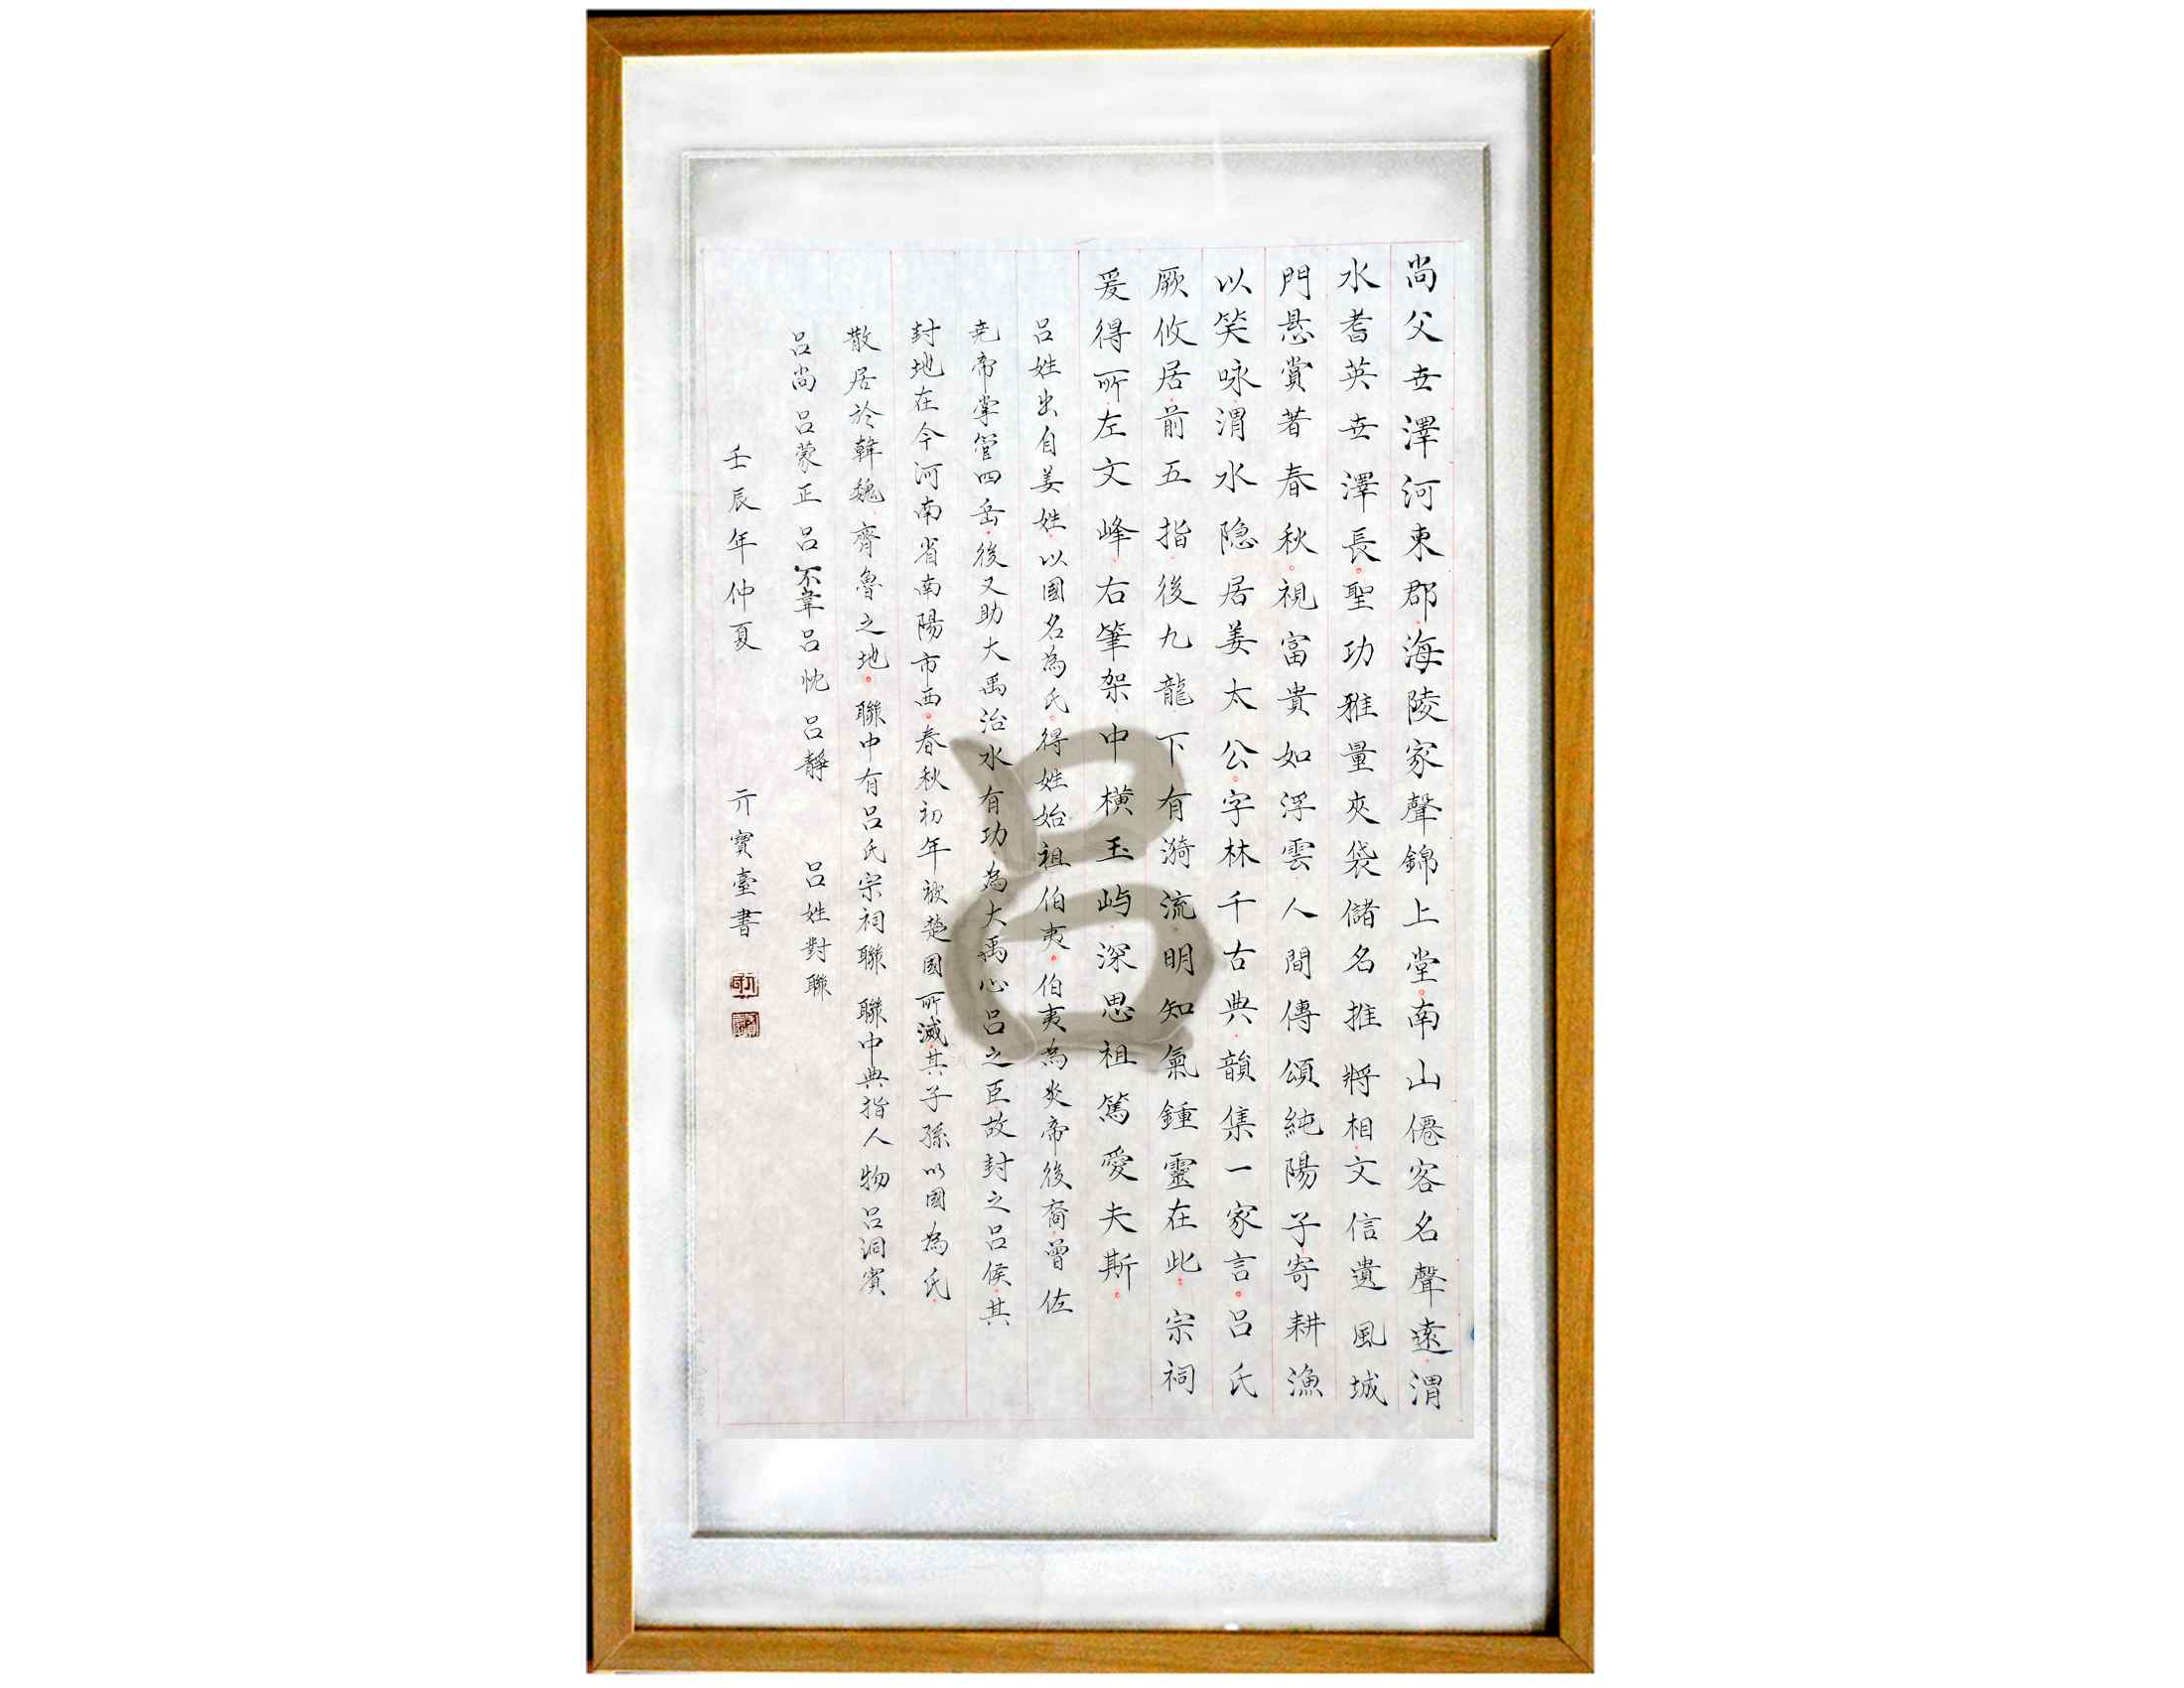 尚父世澤河東郡海陵家聲錦上堂南山僊客名聲遠渭
水耆英世澤長聖功雅量夾袋儲名推將相文信遺風城
門懸賞著春秋視富貴如浮雲人間傳頌純陽子寄耕漁
以笑咏渭水隐居姜太公字林千古典韻集一家言呂氏
厥攸居前五指後九龍下有漪流明知氣鍾靈在此宗祠
爰得所左文峰右筆架中横玉屿深思祖篤愛夫斯
呂姓出自姜姓以國名為氏得姓始祖伯夷伯夷為炎帝後裔曾佐
尭帝掌管四岳後又助大禹治水有功為大禹心呂之臣故封之呂侯其
封地在今河南省南陽市西春秋初年被楚國所滅其子孫以國為氏
散居於韓魏齊魯之地聯中有呂氏宗祠聯聯中典指人物呂洞賓
呂尚呂蒙正呂不韋呂忱呂靜呂姓對聯
壬辰年仲夏亓寶臺書
呂